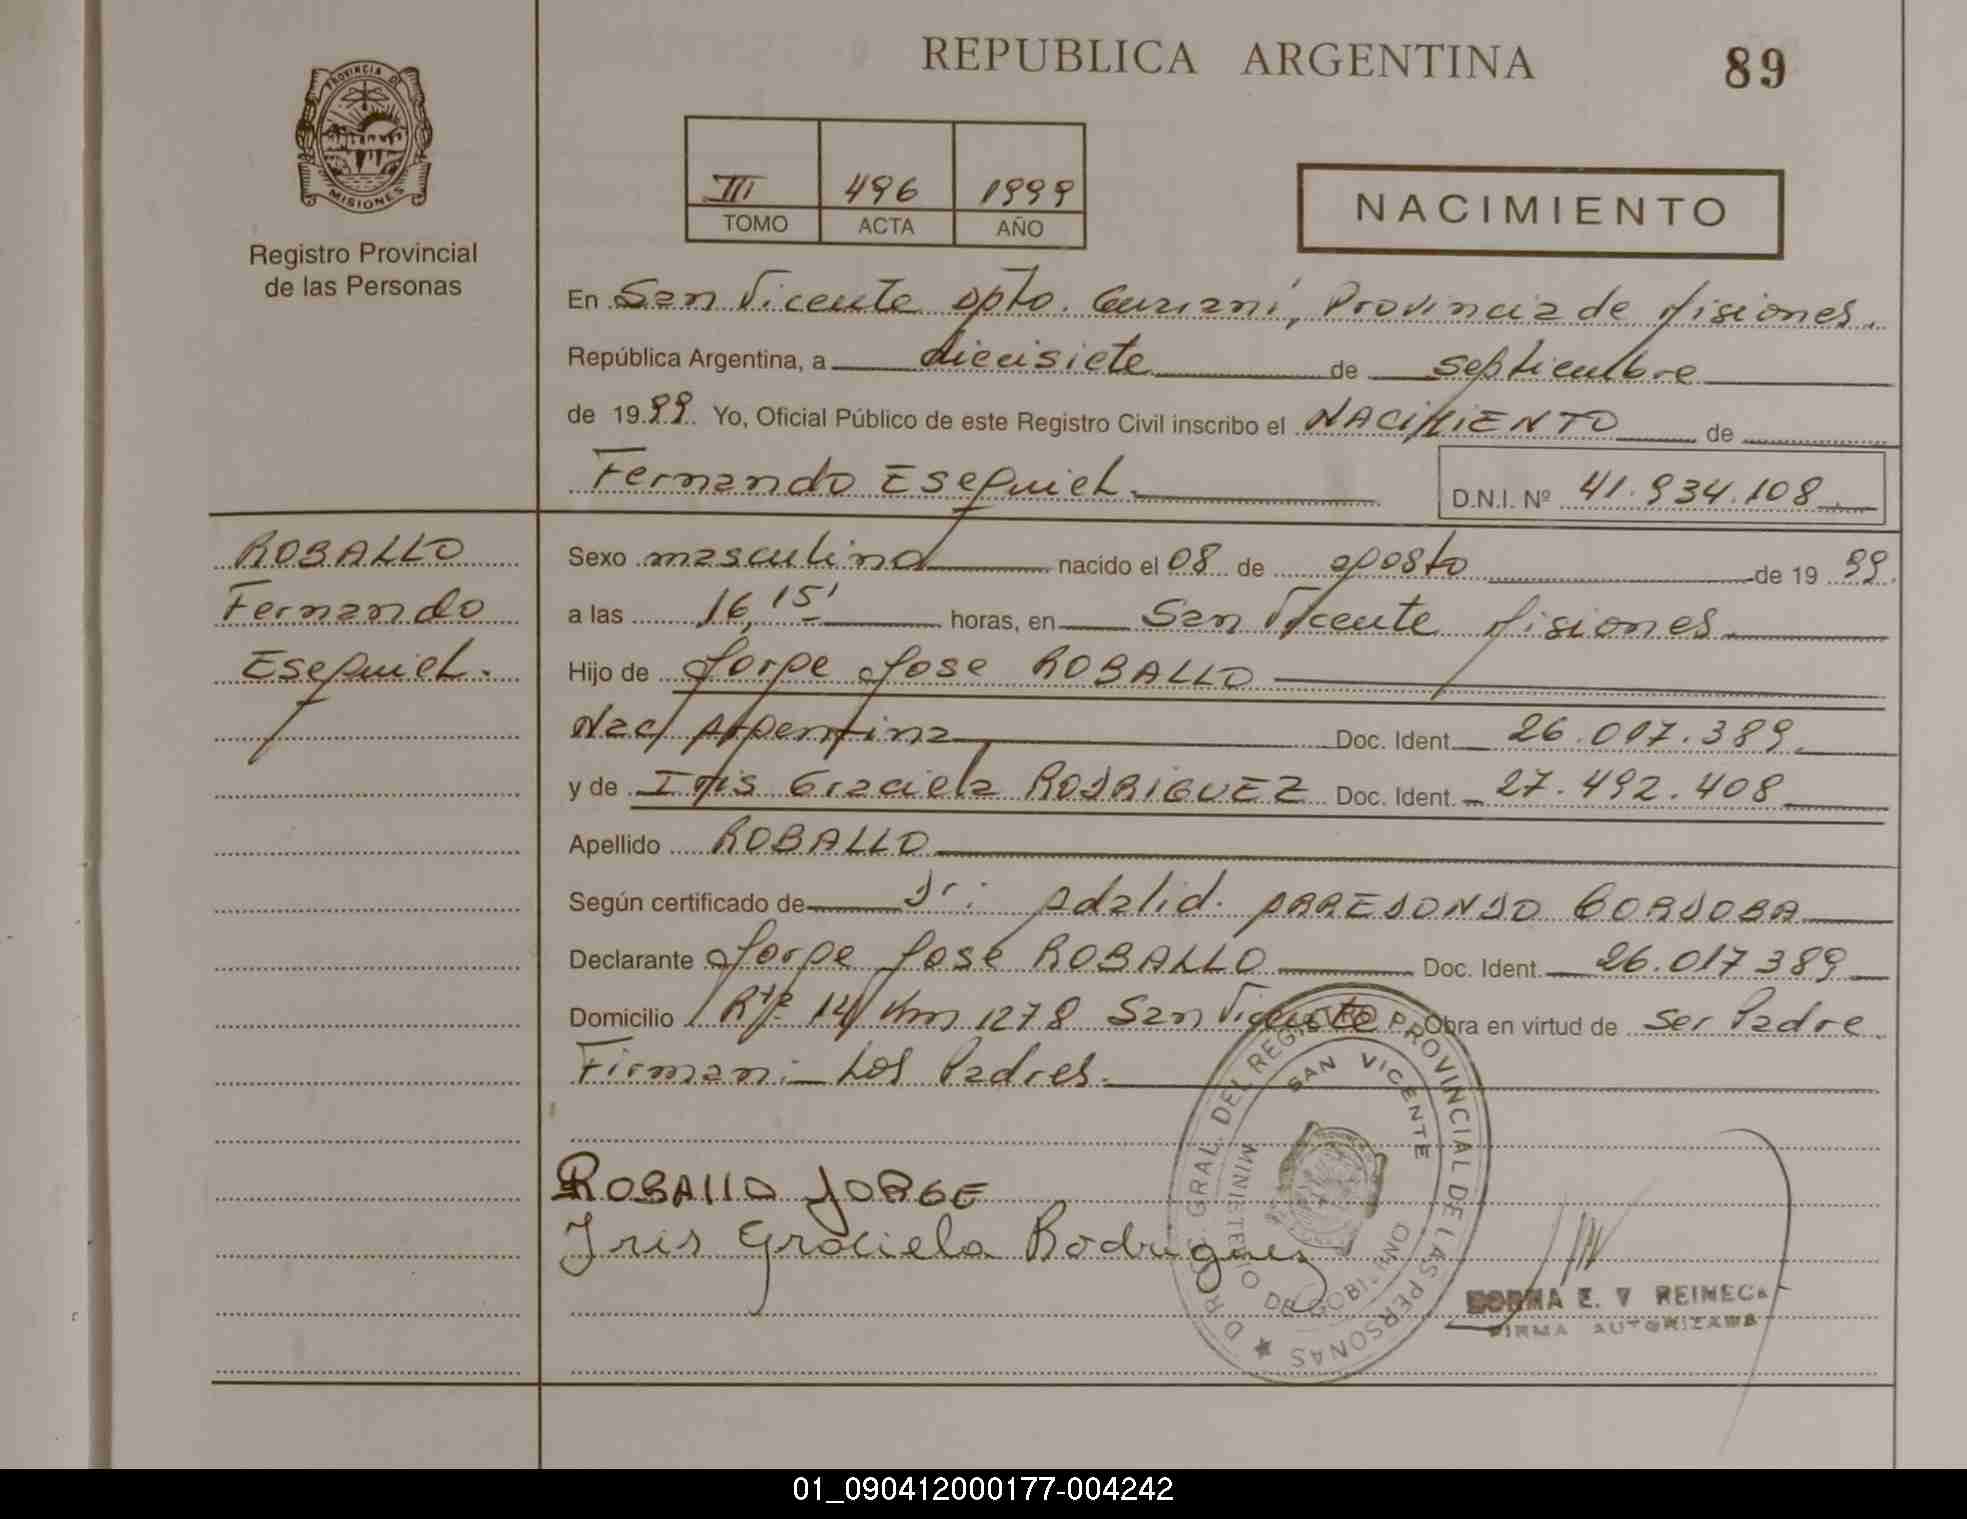 REPUBLICA ARGENTINA
89
PROVINCIA DE
MISIONES
Registro Provincial
de las Personas
III 496 1999
TOMO ACTA AÑO
NACIMIENTO
En San Vicente Dpto. Guarani, Provincia de Misiones.
República Argentina, a diecisiete de septiembre
de 1999. Yo, Oficial Público de este Registro Civil inscribo el NACIMIENTO de
Fernando Esequiel.
D.N.I. Nº 41.934.108
ROBALLO
Fernando
Esequiel.
Sexo masculino nacido el 08 de agosto de 1999.
a las 16,15' horas, en San Vicente Misiones.
Hijo de Jorge Jose ROBALLO
Nac/ Argentina Doc. Ident. 26.017.389
y de Iris Graciela RODRIGUEZ Doc. Ident. 27.492.408
Apellido ROBALLO
Según certificado de Dr: Adalid. ARREDONDO CORDOBA
Declarante Jorge Jose ROBALLO Doc. Ident. 26.017389
Domicilio Rta 14 Km 1278 San Vicente Obra en virtud de ser Padre.
Firman: Los Padres.
ROBALLO JORGE
Iris Graciela Rodriguez
GRAL. DEL REGISTRO PROVINCIAL DE LAS PERSONAS
SAN VICENTE
MINISTERIO DE GOBIERNO
NORMA E. V REINECK
FIRMA AUTORIZADA
01_090412000177-004242